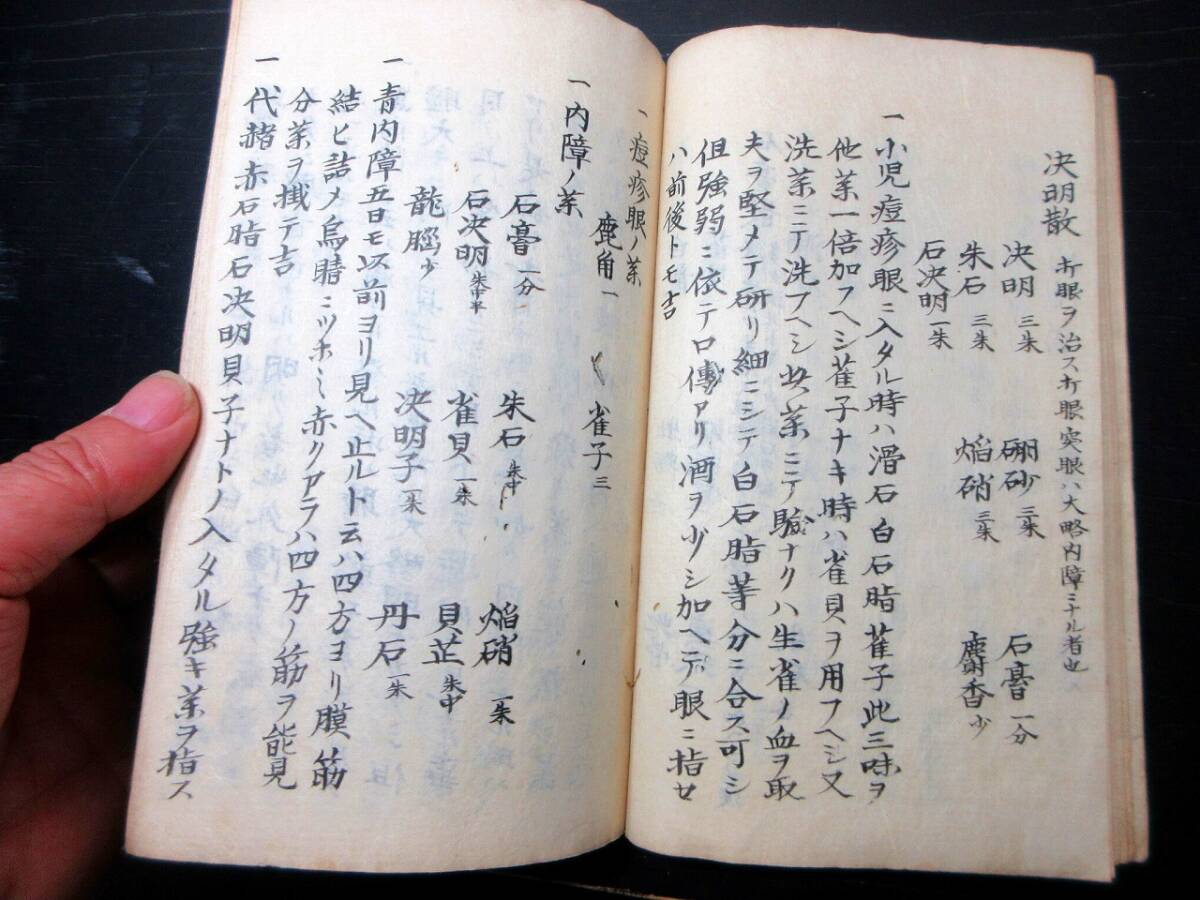 决明散 打眼ヲ治ス打眼突眼ハ大略内障ニナル者也
决明 三朱 硼砂 三朱 石膏 一分
朱石 三朱 焔硝 三朱 麝香 少
石决明 一朱
一 小児痘疹眼ニ入タル時ハ滑石白石脂雀子此三味ヲ
他薬一倍加フヘシ雀子ナキ時ハ雀貝ヲ用フヘシ又
洗薬ニテ洗フヘシ此薬ニテ驗ナクハ生雀ノ血ヲ取
夫ヲ堅メテ研リ細ニシテ白石脂等分ニ合ス可シ
但強弱ニ依テロ傳アリ酒ヲ少シ加ヘテ眼ニ指セ
ハ前後トモ吉
一 痘疹眼ノ薬
鹿角 一 雀子 三
一 内障ノ薬
石膏 一分 朱石 朱中 焔硝 一朱
石决明 朱中半 雀貝 一朱 貝芷 朱中
龍腦 少 决明子 一朱 丹石 一朱
一 青内障五日モ以前ヨリ見ヘ止ルト云ハ四方ヨリ膜筋
結ヒ詰メ烏睛ニツホミ赤クアラハ四方ノ筋ヲ能見
分薬ヲ掛テ吉
一 代赭赤石脂石决明貝子ナトノ入タル強キ薬ヲ指ス